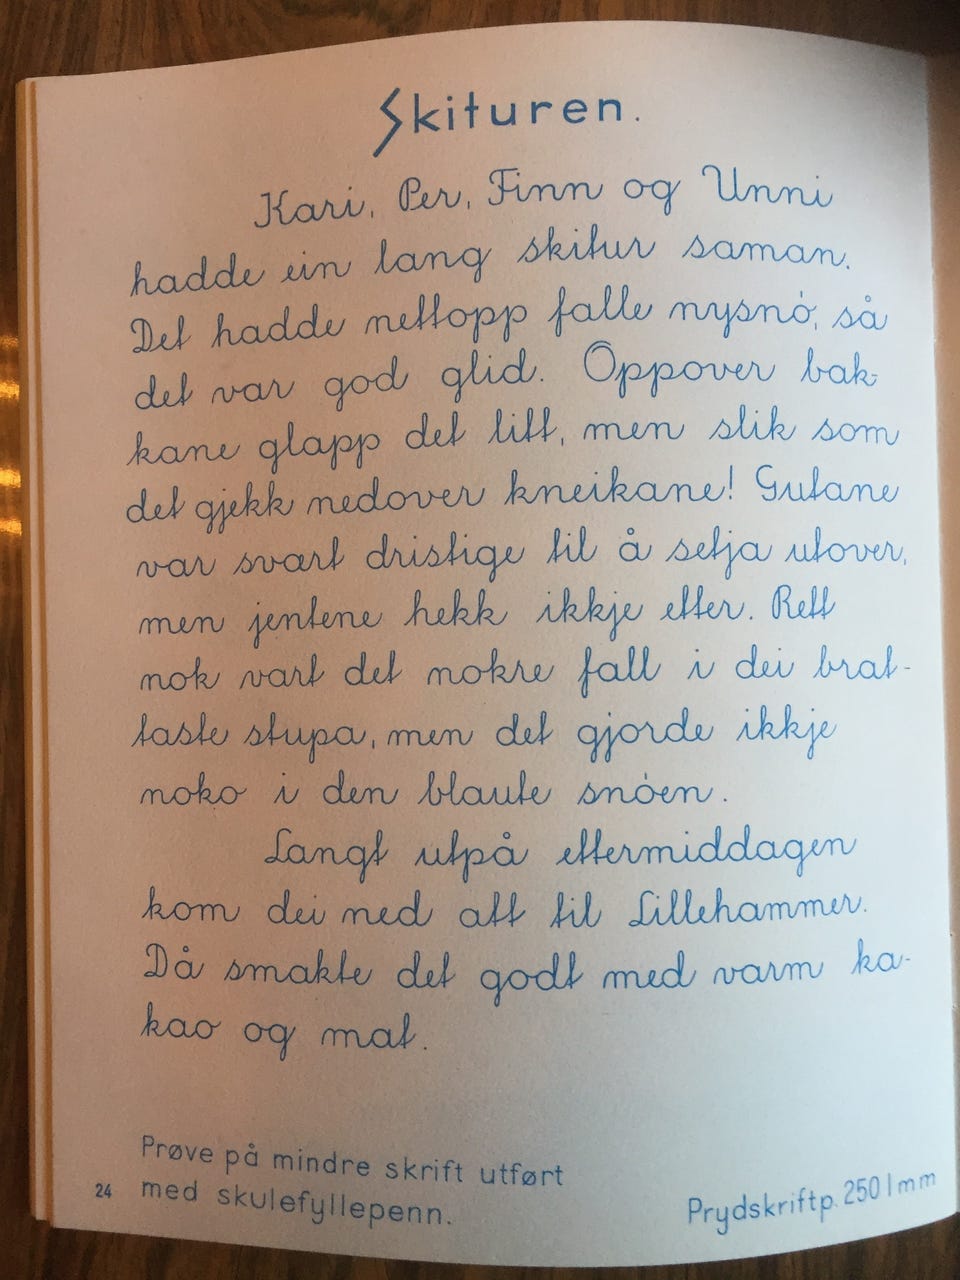 Skituren.
Kari, Per, Finn og Unni
hadde ein lang skitur saman.
Det hadde nettopp falle nysnø, så
det var god glid. Oppover bak-
kane glapp det litt, men slik som
det gjekk nedover kneikane! Gutane
var svært dristige til å setja utover,
men jentene hekk ikkje etter. Rett
nok vart det nokre fall i dei brat-
taste stupa, men det gjorde ikkje
noko i den blaute snøen.
Langt utpå ettermiddagen
kom dei ned att til Lillehammer.
Då smakte det godt med varm ka-
kao og mat.
Prøve på mindre skrift utført
24 med skulefyllepenn.
Prydskriftp. 250 1 mm